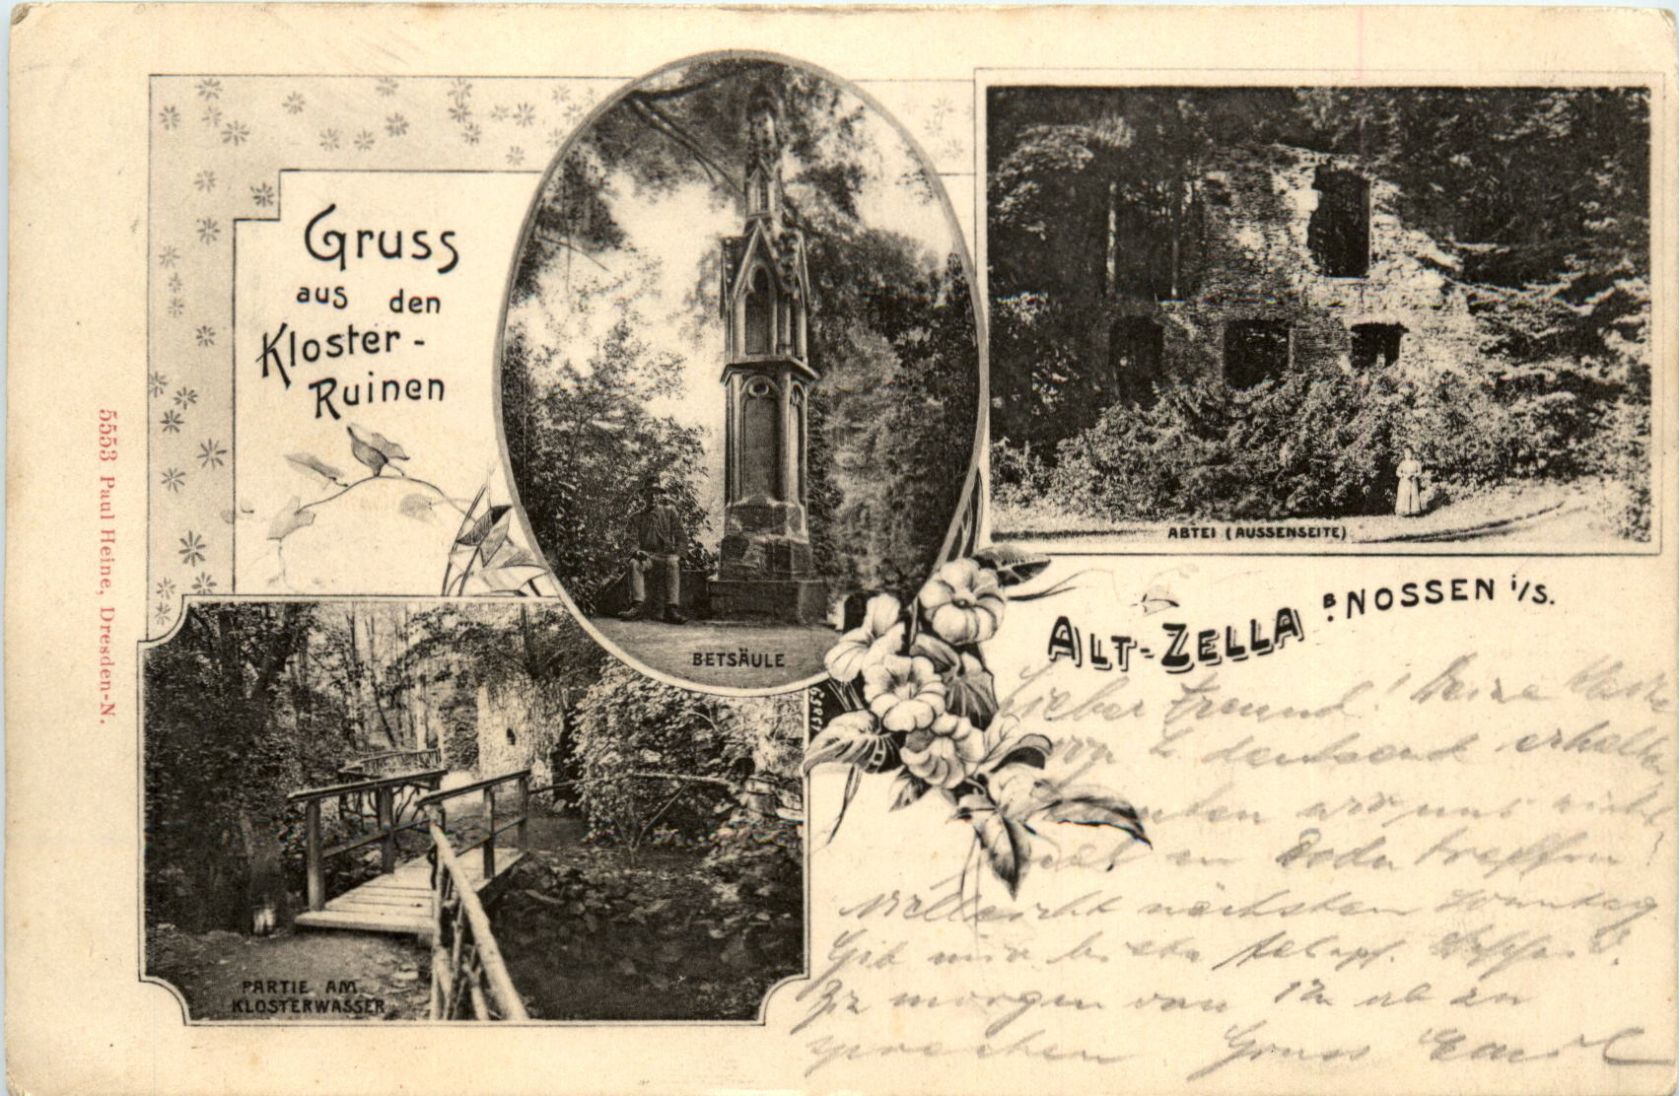 Gruss
aus den
Kloster-
Ruinen
BETSÄULE
ABTEI (AUSSENSEITE)
ALT-ZELLA B. NOSSEN i/S.
PARTIE AM
KLOSTERWASSER
5553 Paul Heine, Dresden-N.
Lieber Freund! Deine Karte
dankend erhalten
wir uns nicht
in treffen
vielleicht nächsten Sonntag
Gib mir bitte
morgen von ab zu
sprechen Gruss Emil